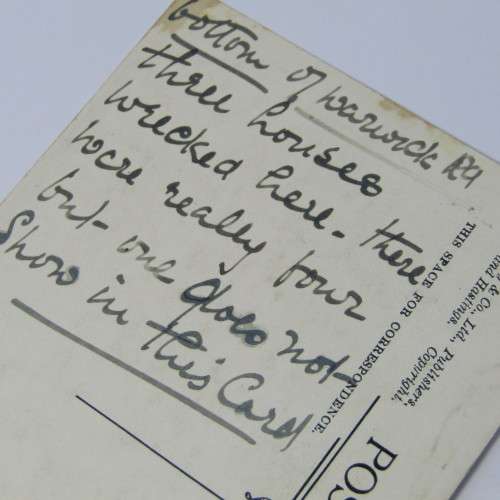 bottom of Warwick Rd
three houses
wrecked here - there
were really four
but - one does not -
Show in this Card
THIS SPACE FOR CORRESPONDENCE.
& Co., Ltd., Publishers,
and Hastings. Copyright.
POS